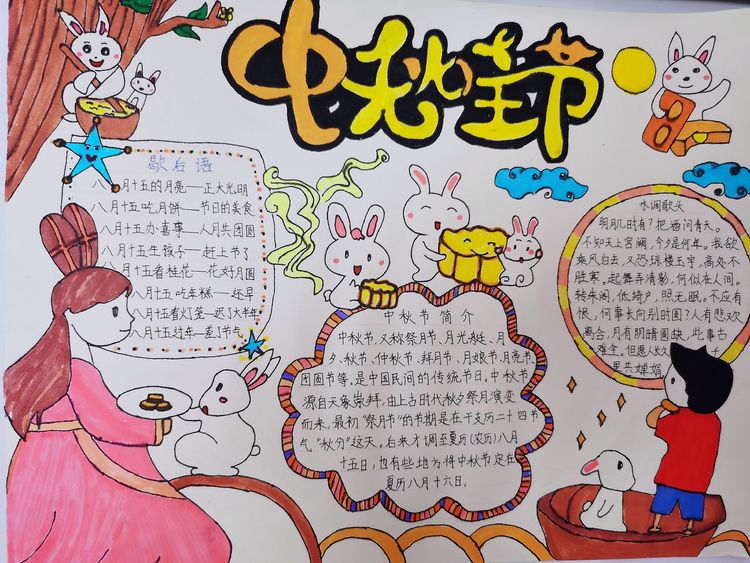 中秋节
歇后语
八月十五的月亮——正大光明
八月十五吃月饼——节日的美食
八月十五办喜事——人月共团圆
八月十五生孩子——赶上节了
八月十五看桂花——花好月圆
八月十五吃年糕——还早
八月十五看灯笼——迟了大半年
八月十五过年——差了节气
中秋节简介
中秋节,又称祭月节、月光诞、月
夕、秋节、仲秋节、拜月节、月娘节、月亮节
团圆节等,是中国民间的传统节日。中秋节
源自天象崇拜,由上古时代秋夕祭月演变
而来,最初"祭月节"的节期是在干支历二十四节
气"秋分"这天。后来才调至夏历(农历)八月
十五日,也有些地方将中秋节定在
夏历八月十六日。
水调歌头
明月几时有?把酒问青天。
不知天上宫阙,今夕是何年。我欲
乘风归去,又恐琼楼玉宇,高处不
胜寒。起舞弄清影,何似在人间。
转朱阁,低绮户,照无眠。不应有
恨,何事长向别时圆?人有悲欢
离合,月有阴晴圆缺,此事古
难全。但愿人长久
里共婵娟